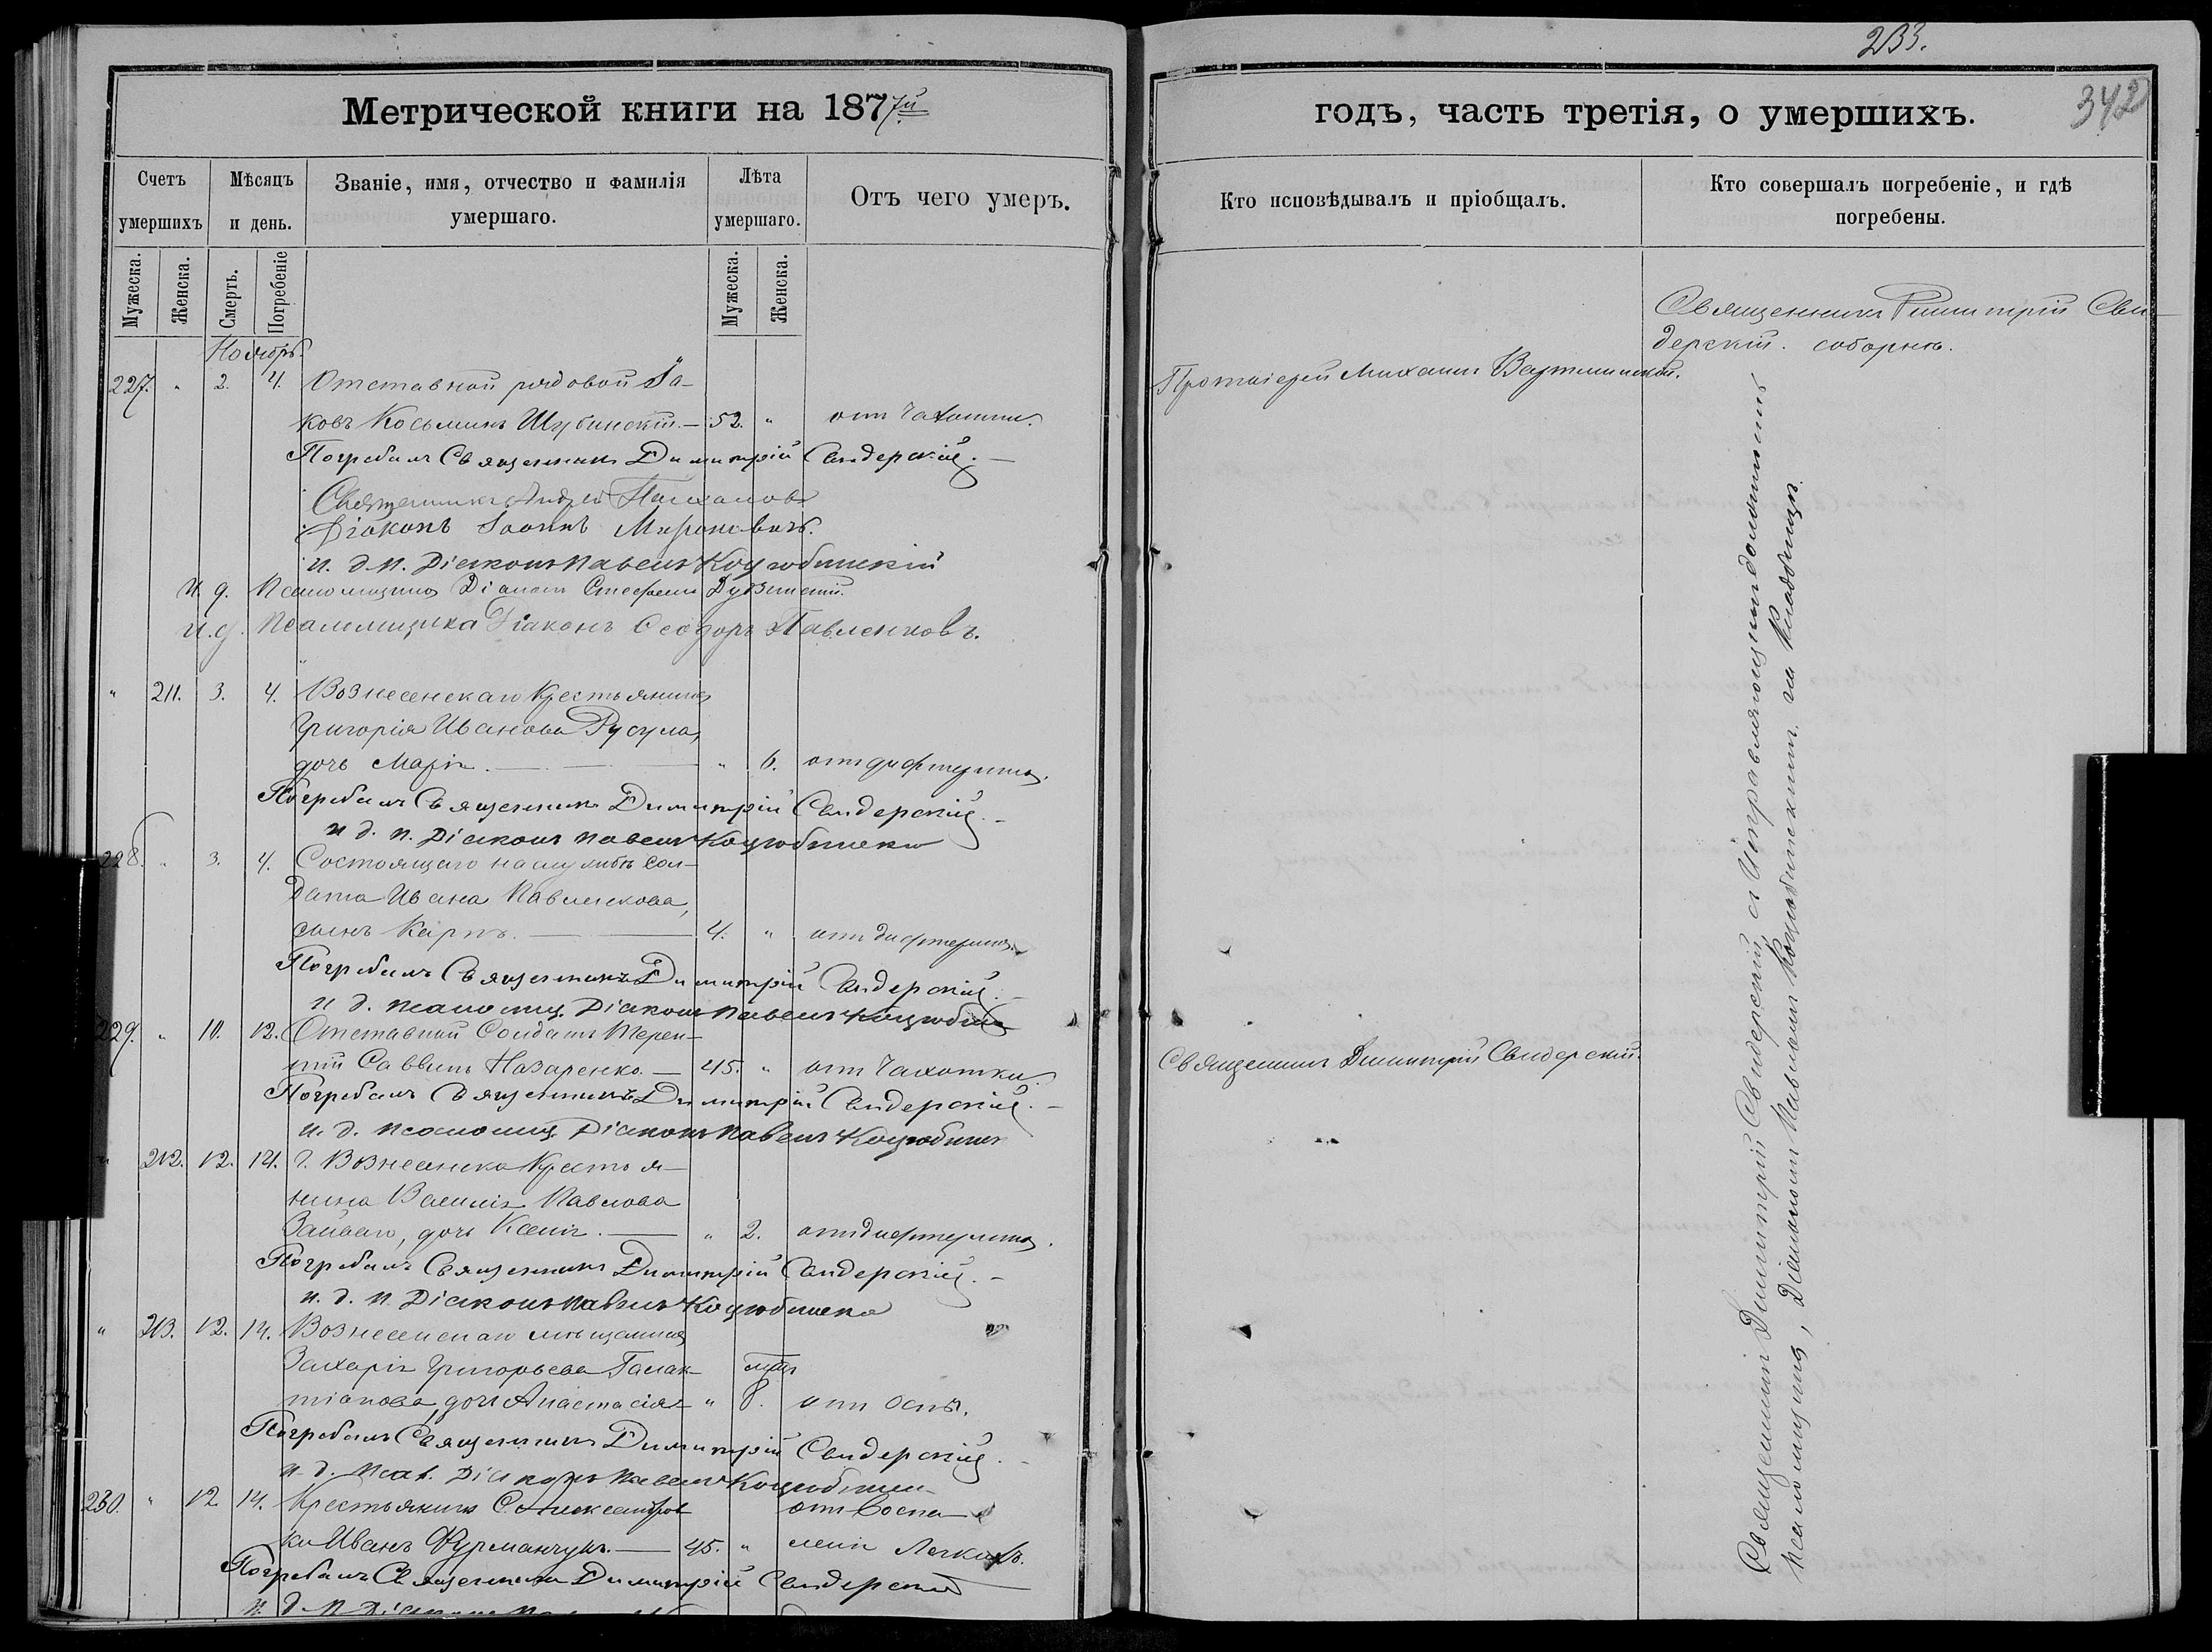 233.
342
Метрической книги на 1877й
годъ, часть третія, о умершихъ.
Счетъ умершихъ
Мѣсяцъ и день.
Званіе, имя, отчество и фамилія умершаго.
Лѣта умершаго.
Отъ чего умеръ.
Кто исповѣдывалъ и пріобщалъ.
Кто совершалъ погребеніе, и гдѣ погребены.
Мужеска.
Женска.
Смерть.
Погребеніе
Мужеска.
Женска.
Ноябрь.
Священникъ Димитрій Сви-
дерскій. соборнѣ.
227. " 2. 4. Отставной рядовой Іа-
Протоіерей Михаилъ
ковъ Косьминъ Шубинскій. — 52. " отъ Чахотки.
Погребалъ Священникъ Димитрій Свидерскій. —
Священникъ Андрей
Діаконъ Іоаннъ Мироновичъ.
и. д. п. Діаконъ Павелъ Коцюбинскій
И. д. Псаломщика Діаконъ Стефанъ
и. д. Псаломщика Діаконъ Ѳеодоръ Павленковъ.
" 211. 3. 4. Вознесенскаго Крестьянина
Григорія Иванова Русула,
дочь Марія. — " 6. отъ дифтерита.
Погребалъ Священникъ Димитрій Свидерскій. —
и д. п. Діаконъ Павелъ Коцюбинскі
228. " 3. 4. Состоящаго на службѣ сол-
дата Ивана Павленкова,
сынъ Карпъ. — 4. " отъ дифтерита.
Погребалъ Священникъ Димитрій Свидерскій. —
и д. псаломщ. Діаконъ Павелъ Коцюбин
229. " 10. 12. Отставной Солдатъ Терен-
тій Саввинъ Назаренко. — 45. " отъ Чахотки.
Священникъ Димитрій Свидерскій.
Погребалъ Священникъ Димитрій Свидерскій. —
и. д. псаломщ. Діаконъ Павелъ Коцюбин
" 212. 12. 14. г. Вознесенска Крестья-
нина Василія Павлова
дочь Ксенія. — " 2. отъ дифтерита.
Погребалъ Священникъ Димитрій Свидерскій. —
и. д. п. Діаконъ Павелъ Коцюбинскі
" 213. 12. 14. Вознесенскаго мѣщанина
Захарія Григорьева Галак-
тіонова, дочь Анастасія — " 8. отъ оспы.
Погребалъ Священникъ Димитрій Свидерскій. —
и. д. Псал. Діаконъ Павелъ Коцюбин
230. " 12. 14. Крестьянинъ С. Александров- отъ Воспа-
ки Иванъ Фурманчукъ. — 45. " ленія Легкихъ.
Погребалъ Священникъ Димитрій Свидерскій
и. д. п. Діаконъ
Священникъ Димитрій Свидерскій, съ Исправляющимъ должность
псаломщика, Діакономъ Павломъ Коцюбинскимъ. на Кладбищѣ.